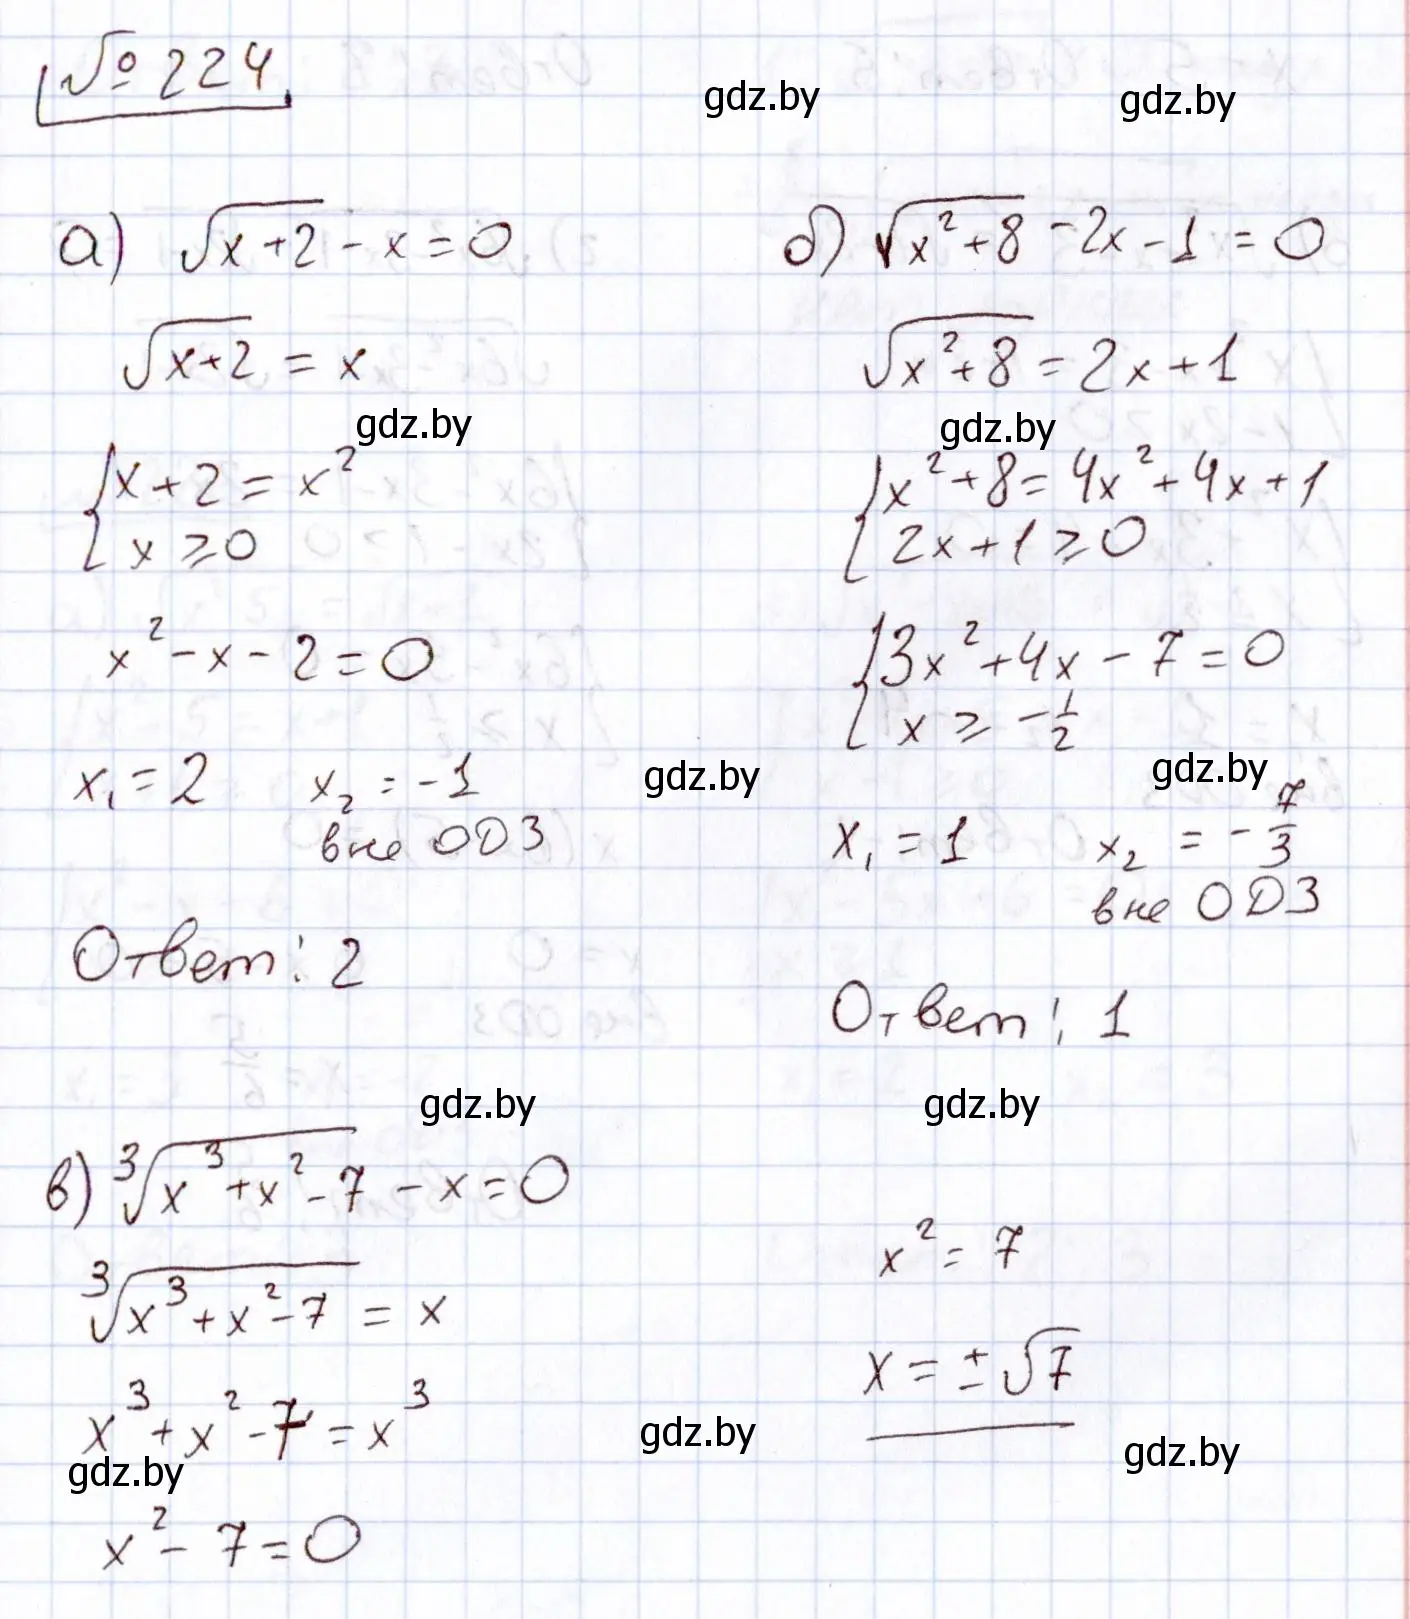 № 224
gdz.by gdz.by
а) √(x+2) - x = 0
√(x+2) = x
gdz.by
{ x + 2 = x²
x ⩾ 0
x² - x - 2 = 0
x₁ = 2 x₂ = -1
вне ОДЗ
Ответ: 2
б) √(x²+8) - 2x - 1 = 0
√(x²+8) = 2x + 1
gdz.by
{ x² + 8 = 4x² + 4x + 1
2x + 1 ⩾ 0
{ 3x² + 4x - 7 = 0
x ⩾ -1/2
gdz.by gdz.by
x₁ = 1 x₂ = -7/3
вне ОДЗ
Ответ: 1
gdz.by gdz.by
в) ∛(x³+x²-7) - x = 0
∛(x³+x²-7) = x
x³ + x² - 7 = x³
gdz.by
x² - 7 = 0
x² = 7
x = ±√7
gdz.by gdz.by